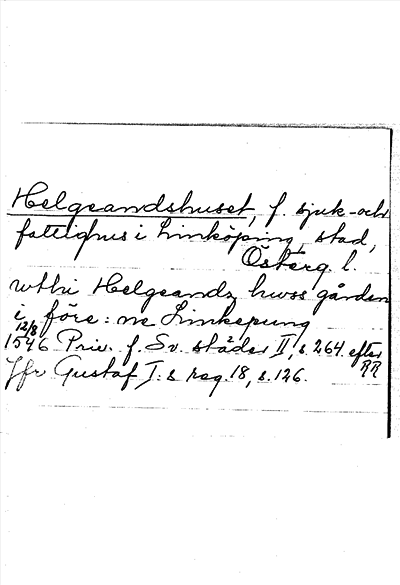 Helgeandshuset, f. sjuk- och
fattighus i Linköping, stad,
Österg. l.
wthi Helgeandz hwss gården
i före: ne Linkepung
12/8
1546 Priv. f. Sv. städer II, s. 264 efter RR
Jfr Gustaf I:s reg. 18, s. 126.